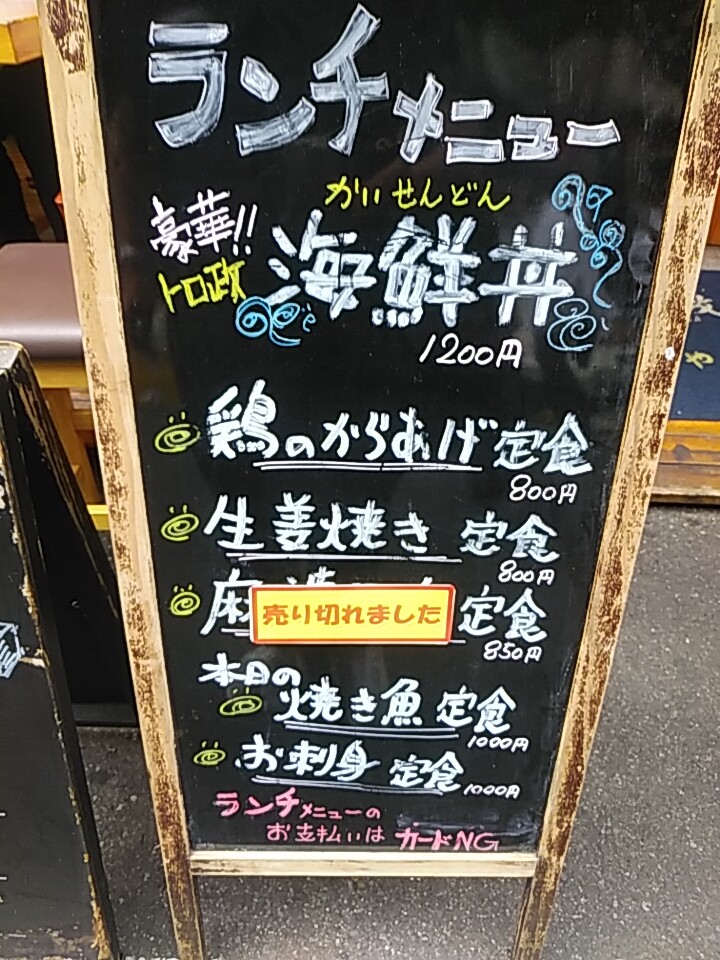 ランチメニュー
かいせんどん
豪華!!
トロ政
海鮮丼
1200円
鶏のからあげ定食
800円
生姜焼き定食
800円
麻 売り切れました 定食
850円
本日の
焼き魚定食
1000円
お刺身定食
1000円
ランチメニューの
お支払いはカードNG